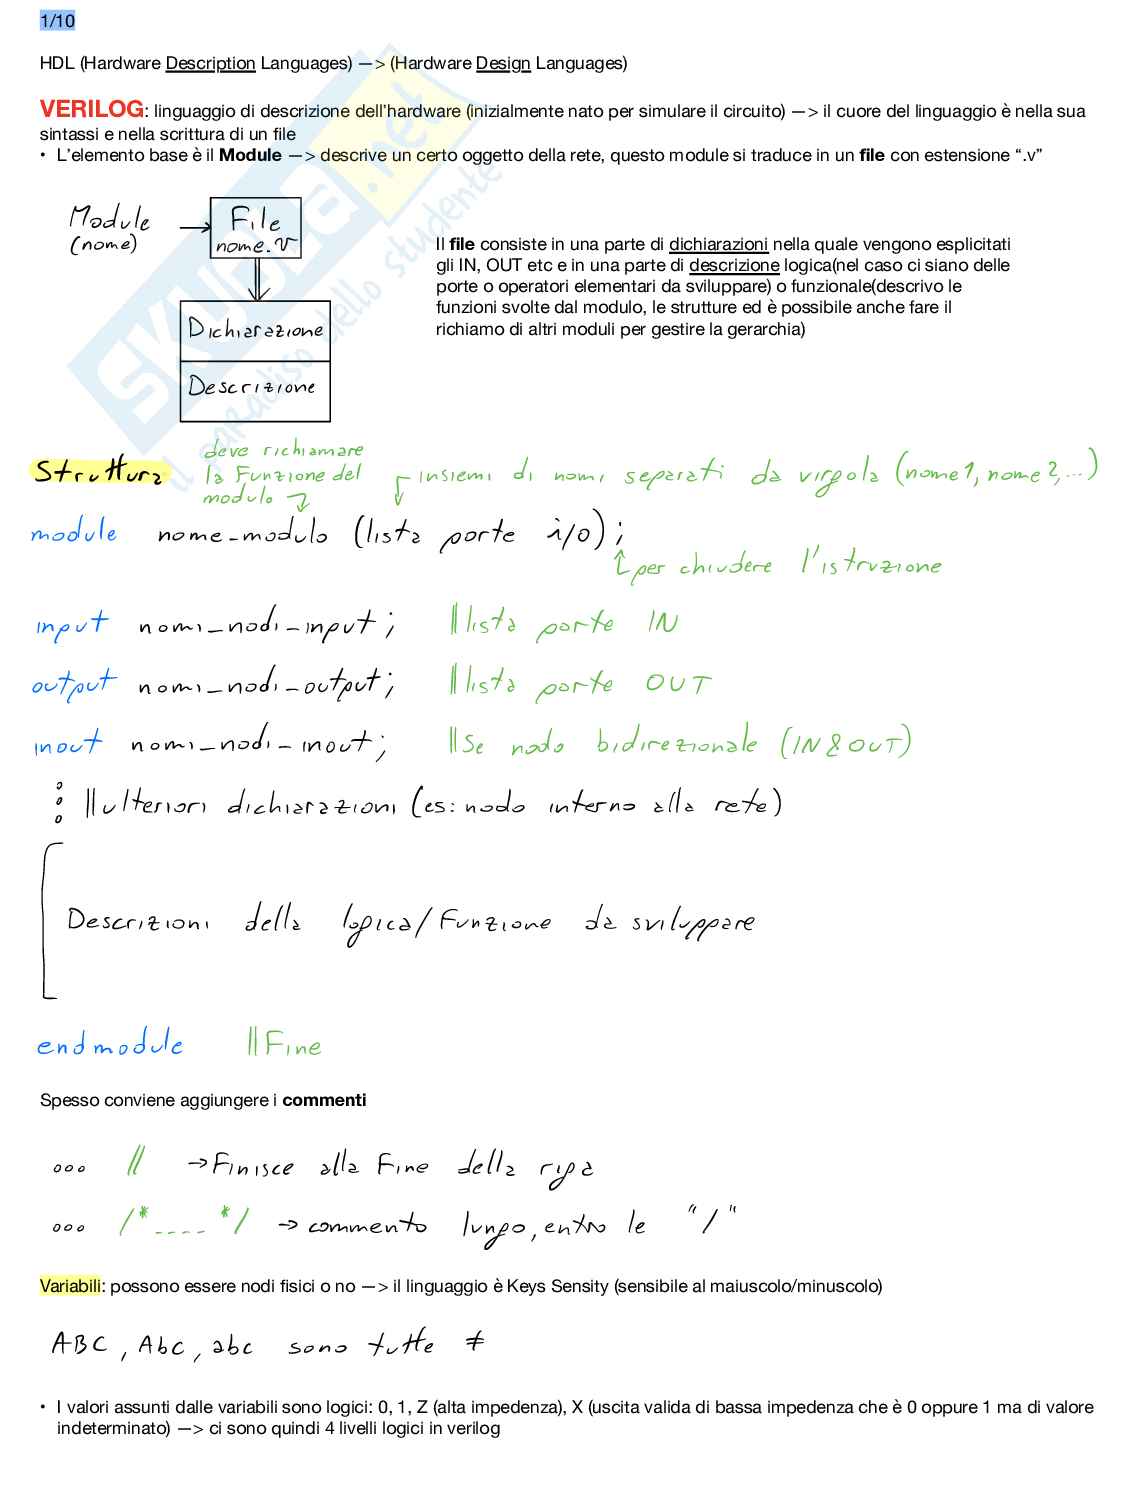 1/10
HDL (Hardware Description Languages) —> (Hardware Design Languages)
VERILOG: linguaggio di descrizione dell'hardware (inizialmente nato per simulare il circuito) —> il cuore del linguaggio è nella sua
sintassi e nella scrittura di un file
• L'elemento base è il Module —> descrive un certo oggetto della rete, questo module si traduce in un file con estensione “.v”
Module
(nome)
File
nome.v
Dichiarazione
Descrizione
Il file consiste in una parte di dichiarazioni nella quale vengono esplicitati
gli IN, OUT etc e in una parte di descrizione logica(nel caso ci siano delle
porte o operatori elementari da sviluppare) o funzionale(descrivo le
funzioni svolte dal modulo, le strutture ed è possibile anche fare il
richiamo di altri moduli per gestire la gerarchia)
SKUOLA.net
il paradiso dello studente
Struttura
deve richiamare
la Funzione del
modulo
insiemi di nomi separati da virgola (nome1, nome2,...)
module nome_modulo (lista porte i/o);
per chiudere l'istruzione
input nomi_nodi_input; //lista porte IN
output nomi_nodi_output; //lista porte OUT
inout nomi_nodi_inout; //Se nodo bidirezionale (IN & OUT)
//ulteriori dichiarazioni (es: nodo interno alla rete)
Descrizioni della logica/Funzione da sviluppare
endmodule //Fine
Spesso conviene aggiungere i commenti
... // -> Finisce alla Fine della riga
... /*____*/ -> commento lungo, entro le "/"
Variabili: possono essere nodi fisici o no —> il linguaggio è Keys Sensity (sensibile al maiuscolo/minuscolo)
ABC, Abc, abc sono tutte ≠
• I valori assunti dalle variabili sono logici: 0, 1, Z (alta impedenza), X (uscita valida di bassa impedenza che è 0 oppure 1 ma di valore
indeterminato) —> ci sono quindi 4 livelli logici in verilog